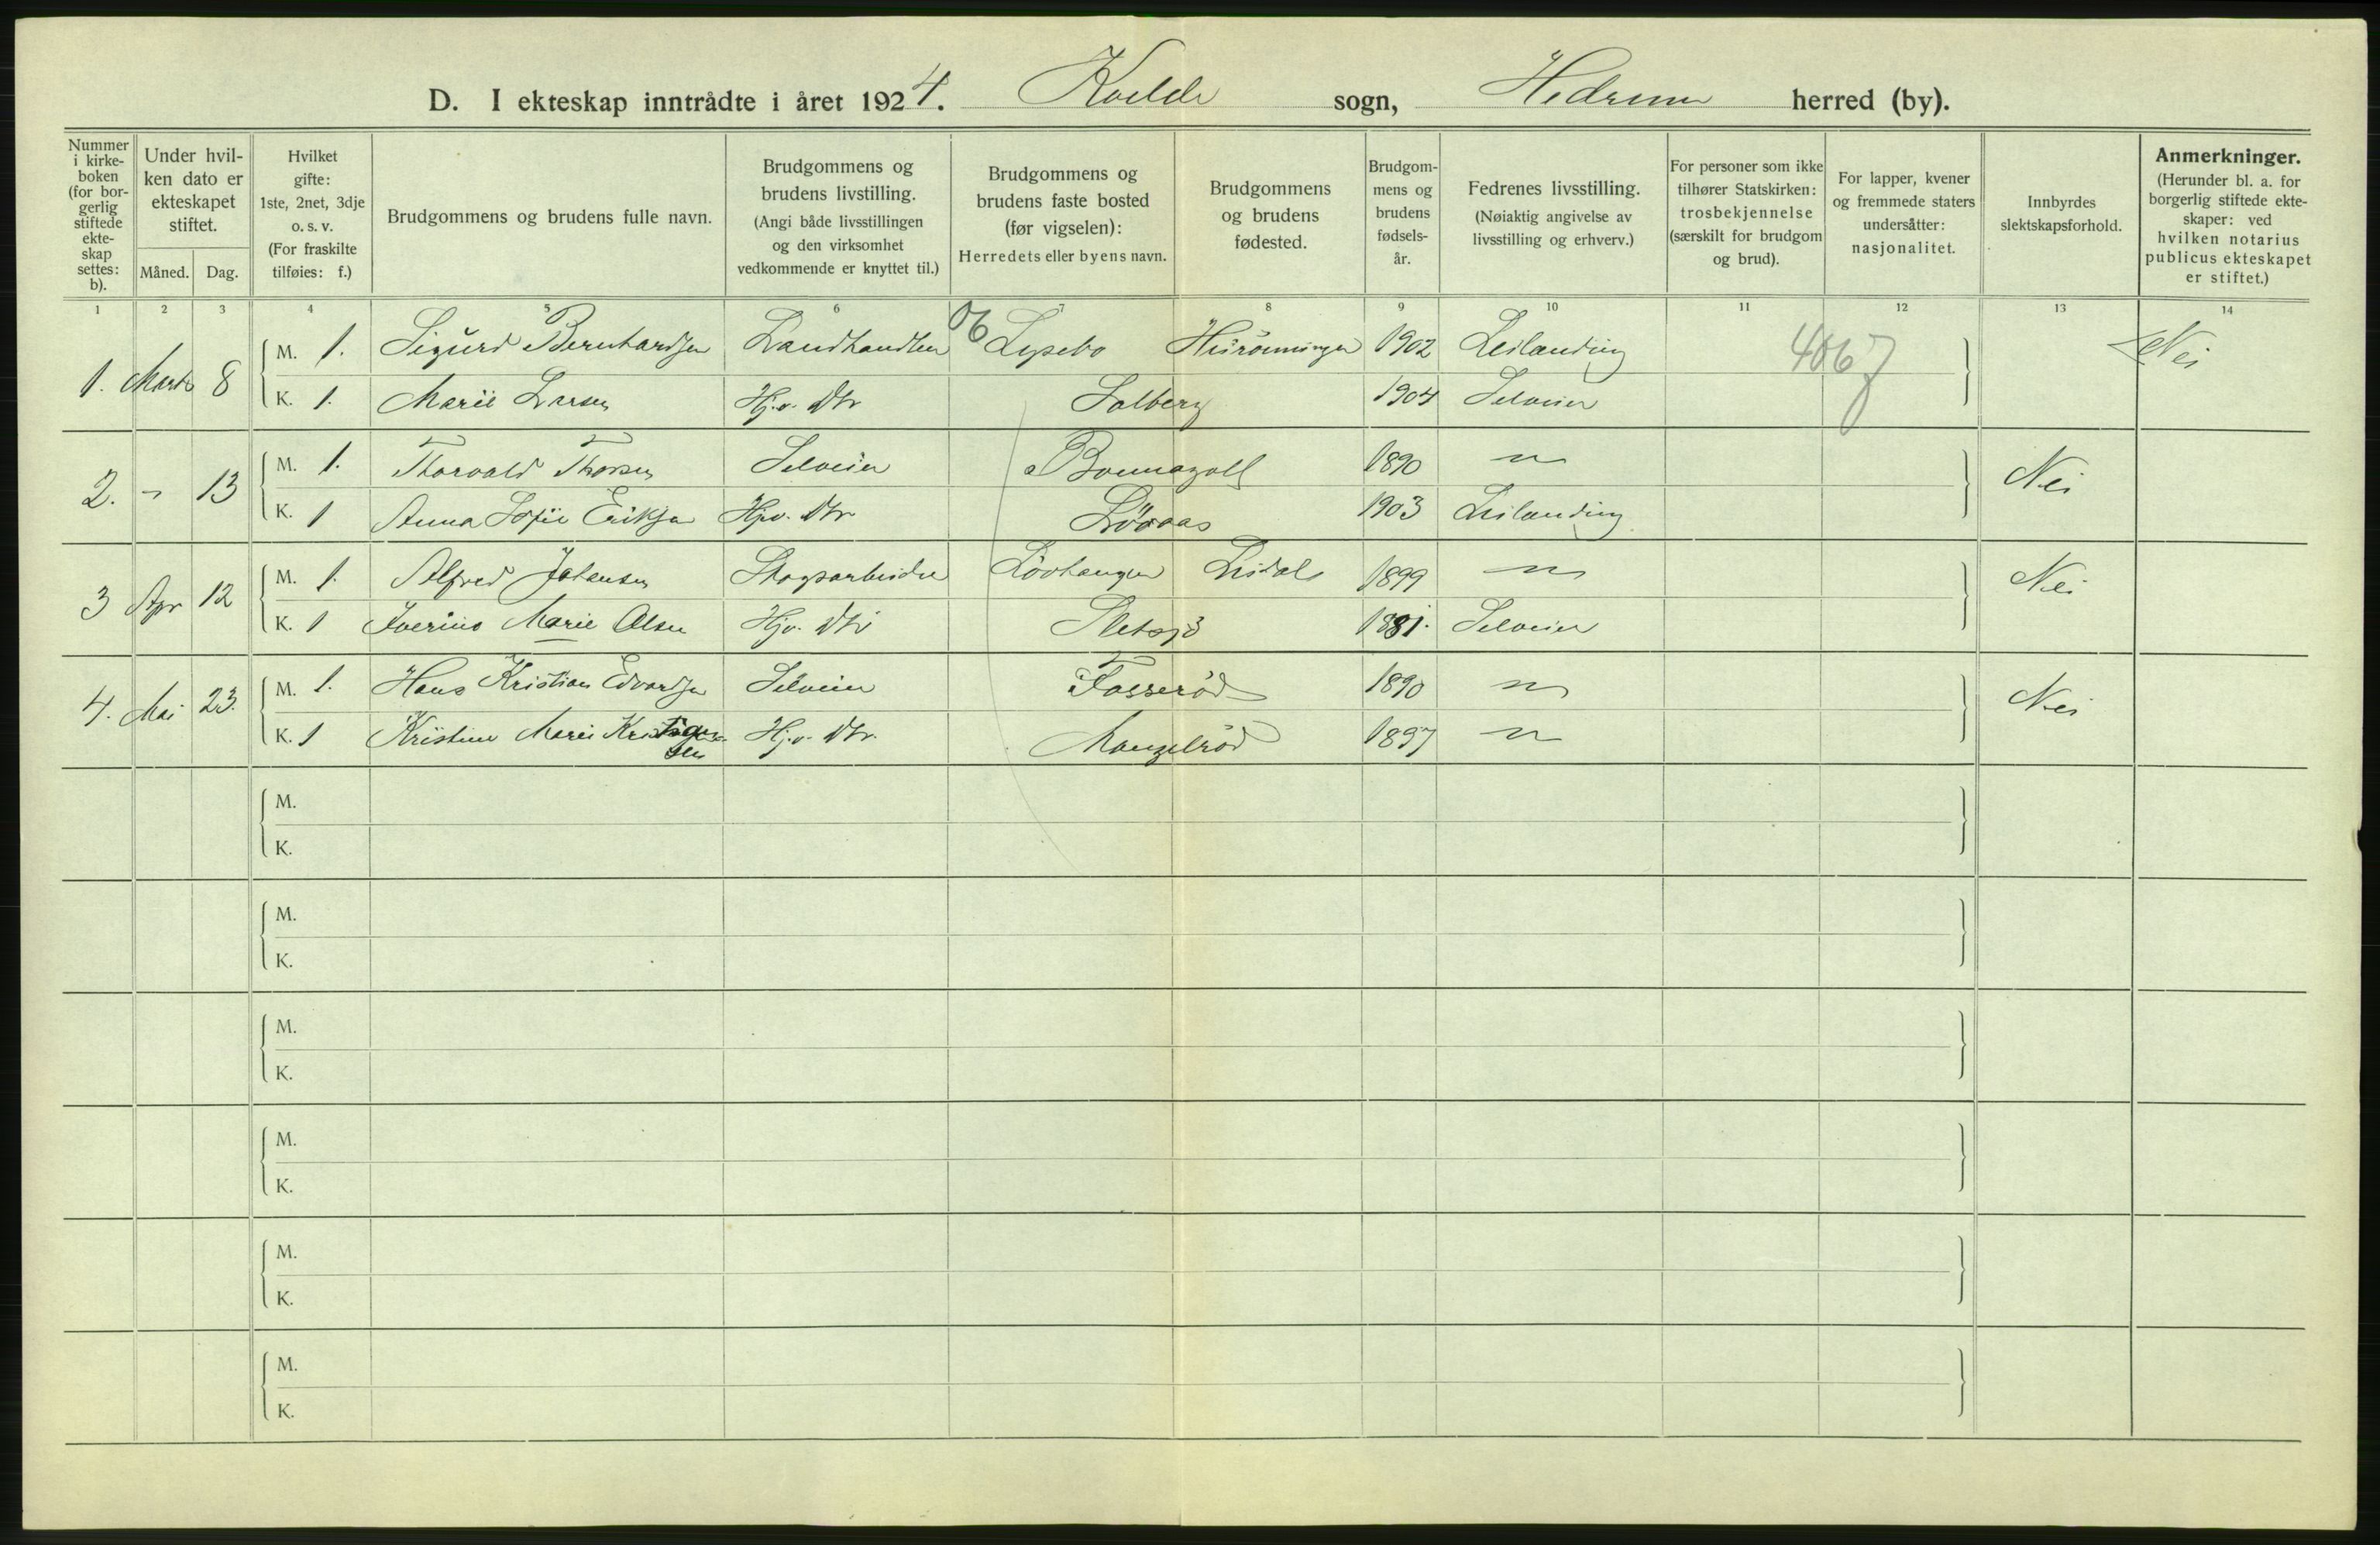 D. I ekteskap inntrådte i året 1924. Kvelde sogn, Hedrum herred (by).
Nummer i kirkeboken (for borgerlig stiftede ekteskap settes: b).
Under hvilken dato er ekteskapet stiftet.
Måned. Dag.
Hvilket gifte: 1ste, 2net, 3dje o. s. v. (For fraskilte tilføies: f.)
Brudgommens og brudens fulle navn.
Brudgommens og brudens livstilling. (Angi både livsstillingen og den virksomhet vedkommende er knyttet til.)
Brudgommens og brudens faste bosted (før vigselen): Herredets eller byens navn.
Brudgommens og brudens fødested.
Brudgommens og brudens fødselsår.
Fedrenes livsstilling. (Nøiaktig angivelse av livsstilling og erhverv.)
For personer som ikke tilhører Statskirken: trosbekjennelse (særskilt for brudgom og brud).
For lapper, kvener og fremmede staters undersåtter: nasjonalitet.
Innbyrdes slektskapsforhold.
Anmerkninger. (Herunder bl. a. for borgerlig stiftede ekteskaper: ved hvilken notarius publicus ekteskapet er stiftet.)
1 2 3 4 5 6 7 8 9 10 11 12 13 14
1. Marts 8 M. 1. Sigurd Bernhardsen Landhandler Lysebo 1902 Leilænding 4067 Nei
K. 1. Marie Larsen Hj.v. Dtr Solberg 1904 Selveier
2. " 13 M. 1. Thorvald Thorsen Selveier Bommagoll 1890 "
K. 1 Anna Sofie Eriksen Hjv. Dtr Løvaas 1903 Leilænding Nei
3 Apr 12 M. 1. Alfred Johansen Skogsarbeider Løvhaugen Lisdal 1899 "
K. 1 Iverine Marie Olsen Hjv. Dtr Sletsjø 1881. Selveier Nei
4. Mai 23. M. 1. Hans Kristian Edvardsen Selveier Fosserød 1890 "
K. 1 Kristine Marie Kristiansen Hj.v. Dtr. Mangelrød 1897 " Nei
M.
K.
M.
K.
M.
K.
M.
K.
M.
K.
M.
K.